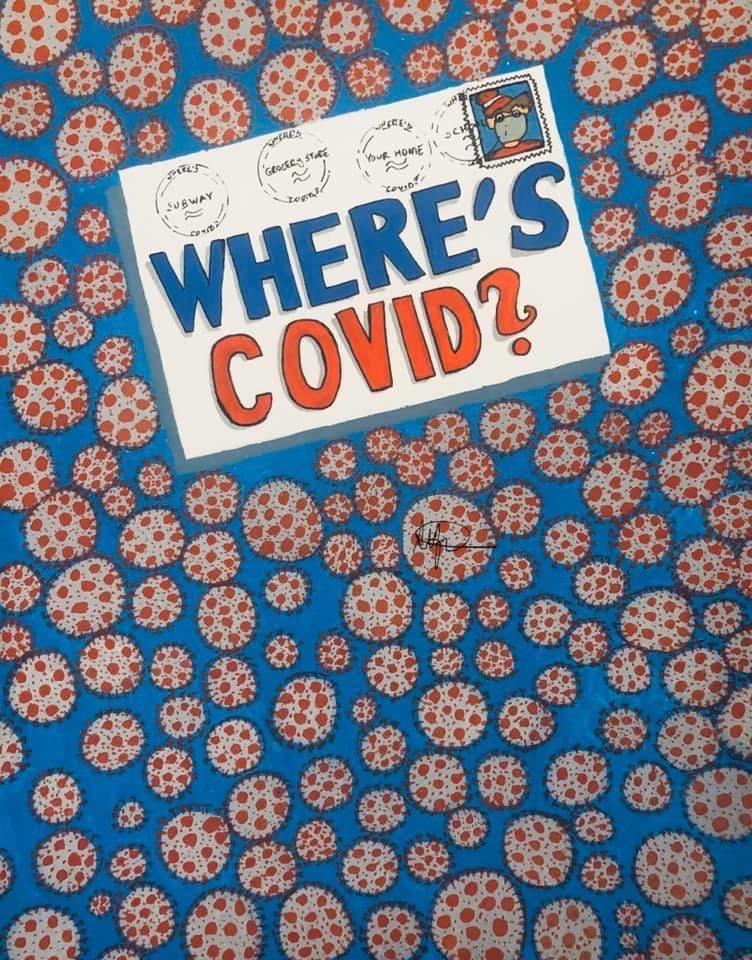 WHERE'S
SUBWAY
COVID?
WHERE'S
GROCERY STORE
COVID?
WHERE'S
YOUR HOME
COVID?
WHERE'S
COVID?